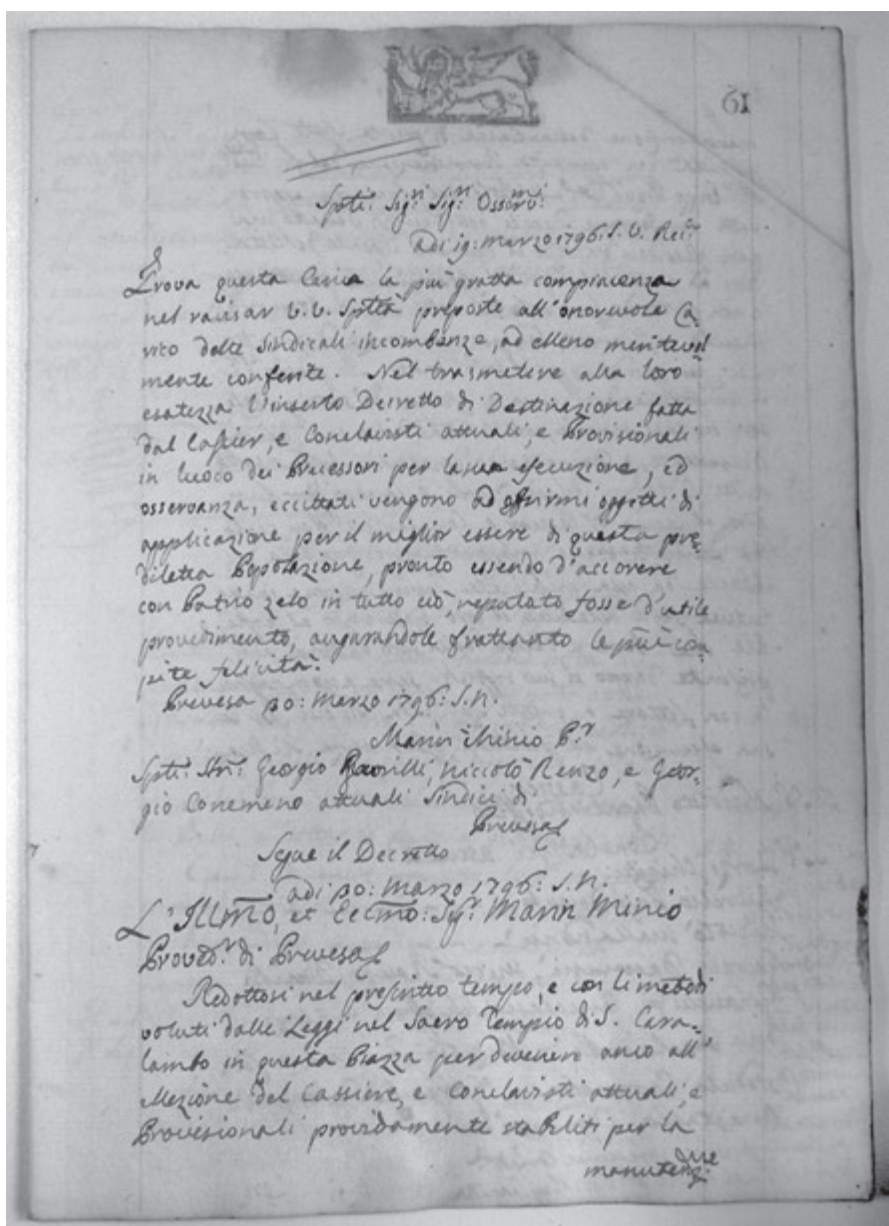 61
Sptti: Sigri: Sigri: Ossermi:
adi 19: Marzo 1796: S. V. Rei
Prova questa Carica la più gratta compiacenza
nel ravisar V.V. Sptta preposte all'onorevole Ca
rico delle Sindicali incombenze, ad elleno meritevol
mente conferite. Nel trasmetere alla loro
esatezza l'inserto Decretto di Destinazione fatta
dal Cassier, e Conclavisti attuali, e Provisionali
in luoco dei Precessori per la sua esecuzione, ed
osservanza, eccittati vengono ad offrirmi oggetti di
applicazione per il miglior essere di questa pre
diletta Popolazione, pronto essendo d'accorere
con Patrio zelo in tutto ciò, reputato fosse d'utile
provedimento, augurandole frattanto le più com
pite felicità.
Prevesa 30: Marzo 1796: S. N.
Marin Minio Pr
Sptti: Stri: Georgio , Niccolò Renzo, e Geor-
gio Conemeno attuali Sindici di
Prevesa
Segue il Decretto
adi 30: Marzo 1796: S. N.
L'Illmo, et Eccmo: Sigr Marin Minio
Provedr di Prevesa
Redottosi nel prefinitto tempo, e con li metodi
voluti dalle Leggi nel Sacro Tempio di S. Cara-
lambo in questa Piazza per devenire anco all'
Elezione del Cassiere, e Conclavisti attuali, e
Provisionali providamente stabiliti per la